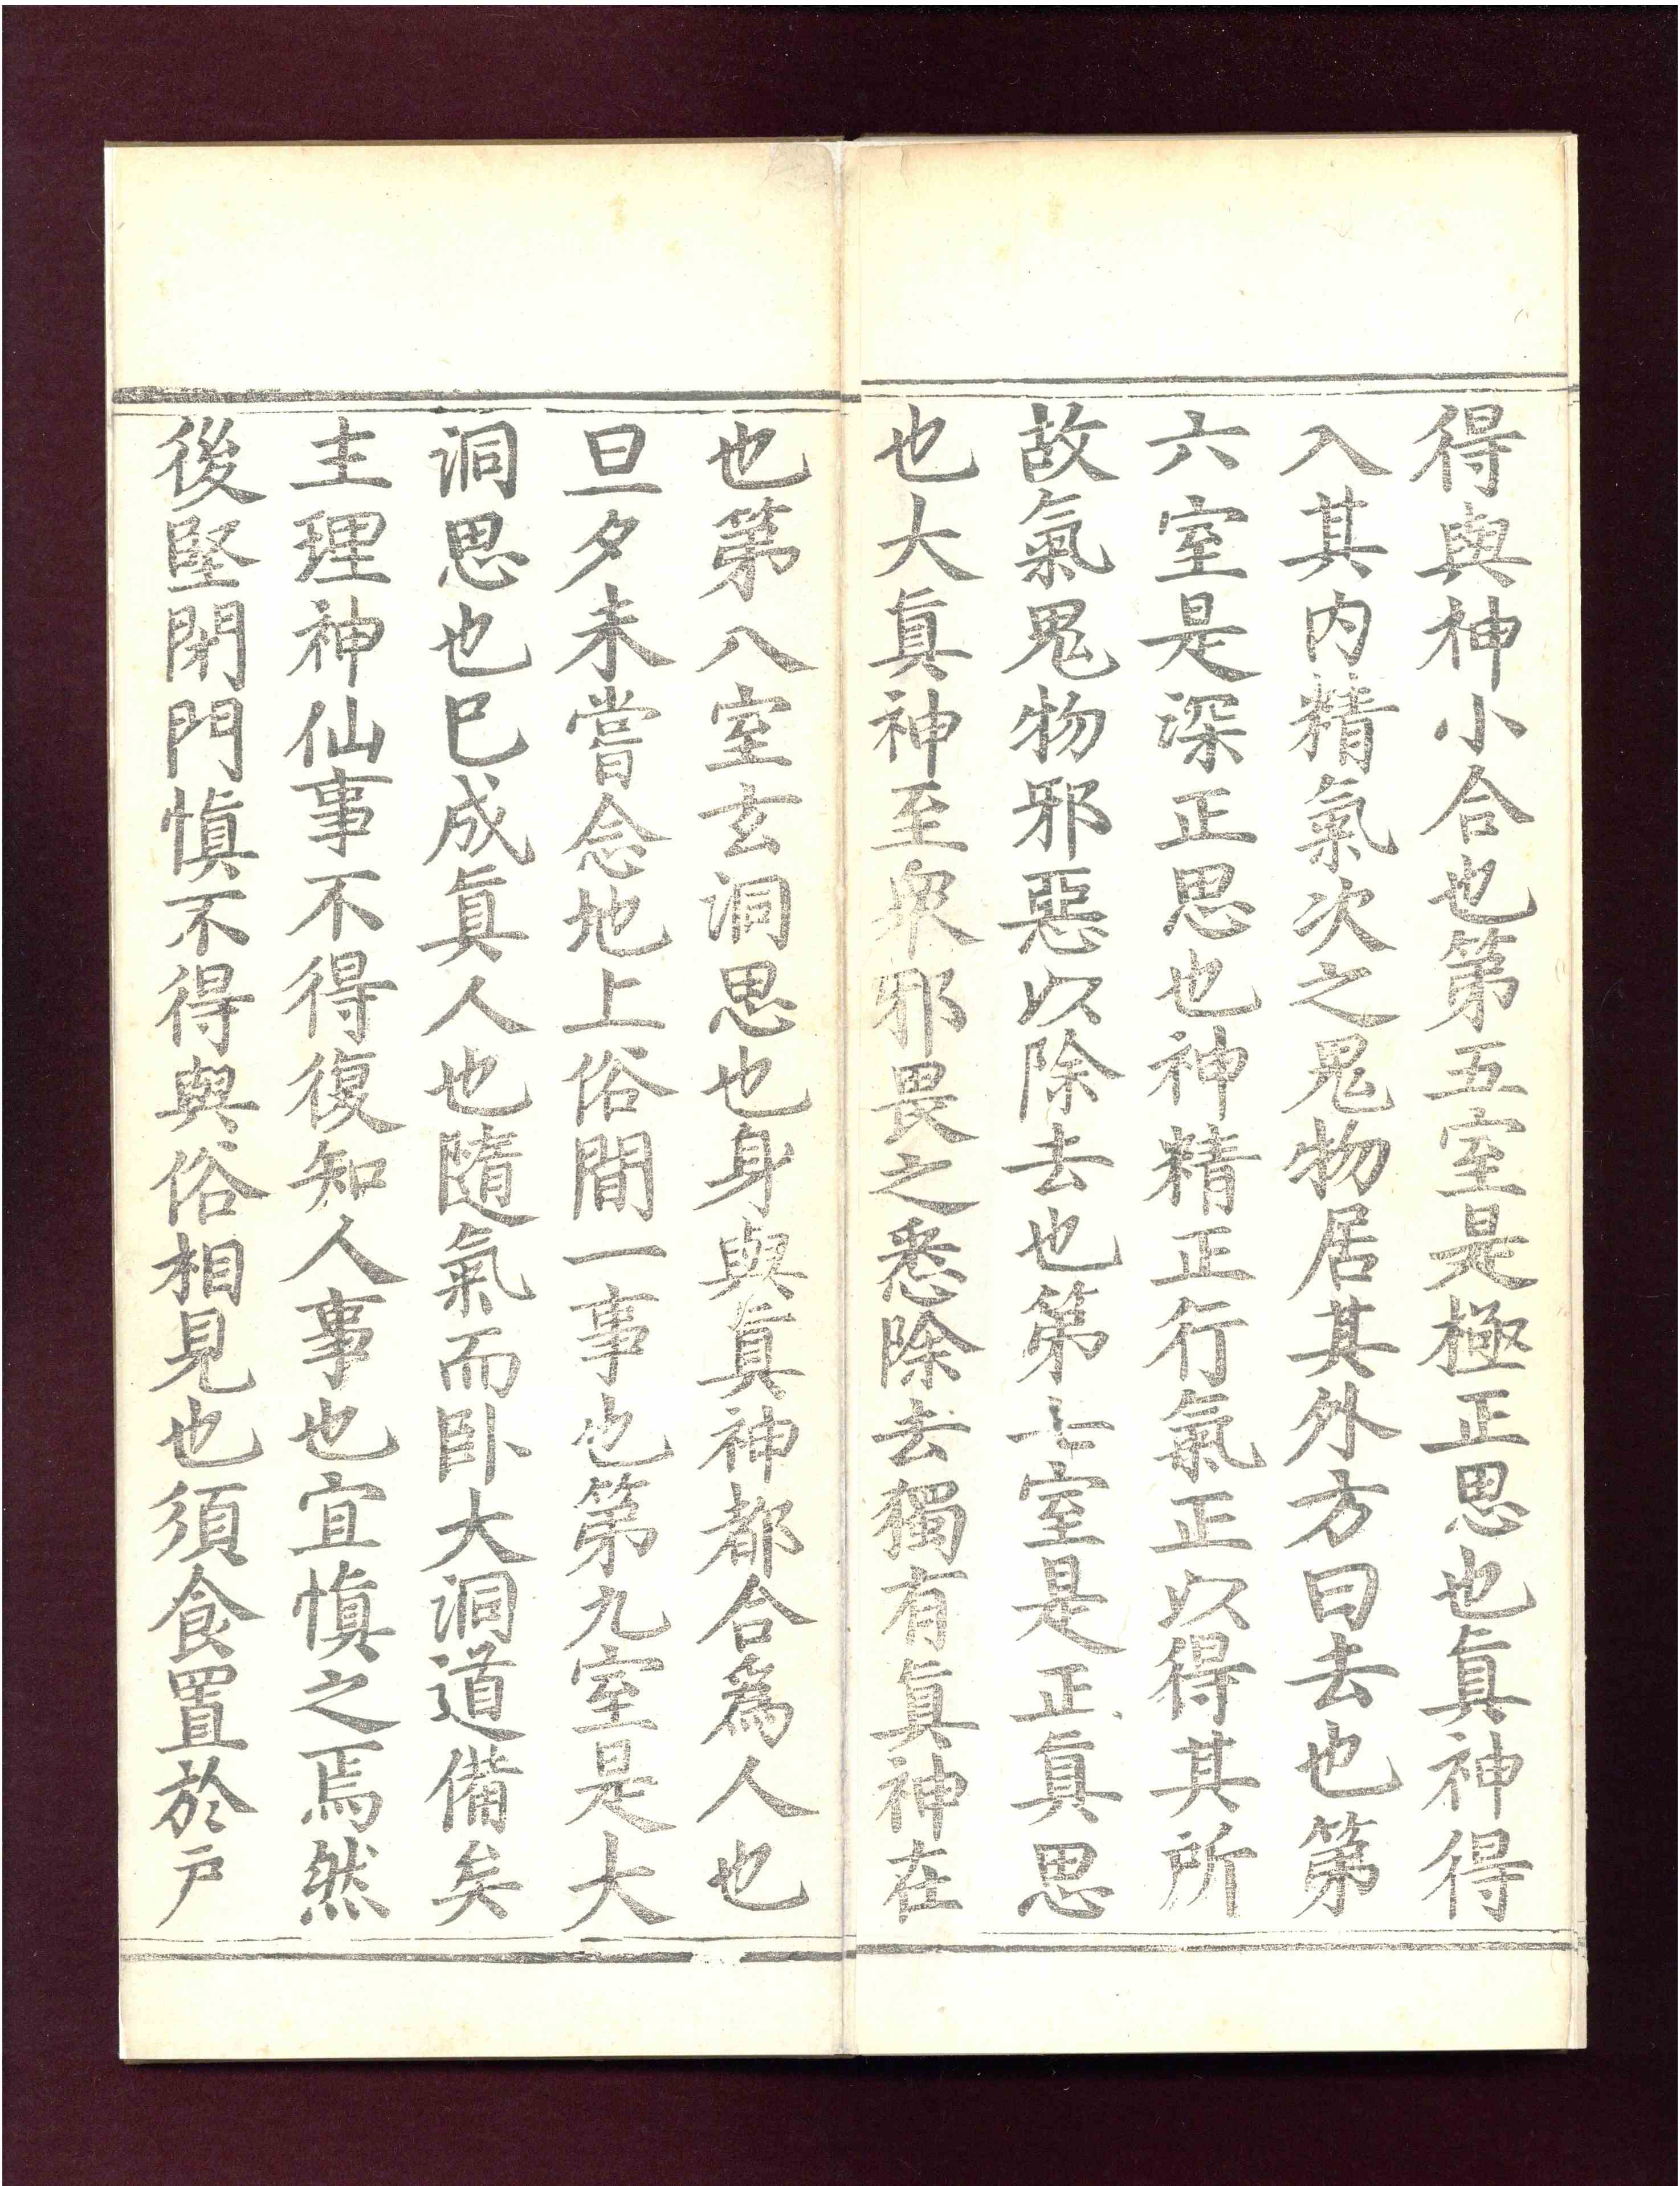 得與神小合也第五室是極正思也眞神得
入其内精氣次之鬼物居其外方曰去也第
六室是深正思也神精正行氣正以得其所
故氣鬼物邪惡以除去也第七室是正眞思
也大眞神至衆邪畏之悉除去獨有眞神在
也第八室玄洞思也身與眞神都合爲人也
旦夕未嘗念地上俗間一事也第九室是大
洞思也已成眞人也隨氣而卧大洞道備矣
主理神仙事不得復知人事也宜愼之焉然
後堅閉門愼不得與俗相見也須食置於戶